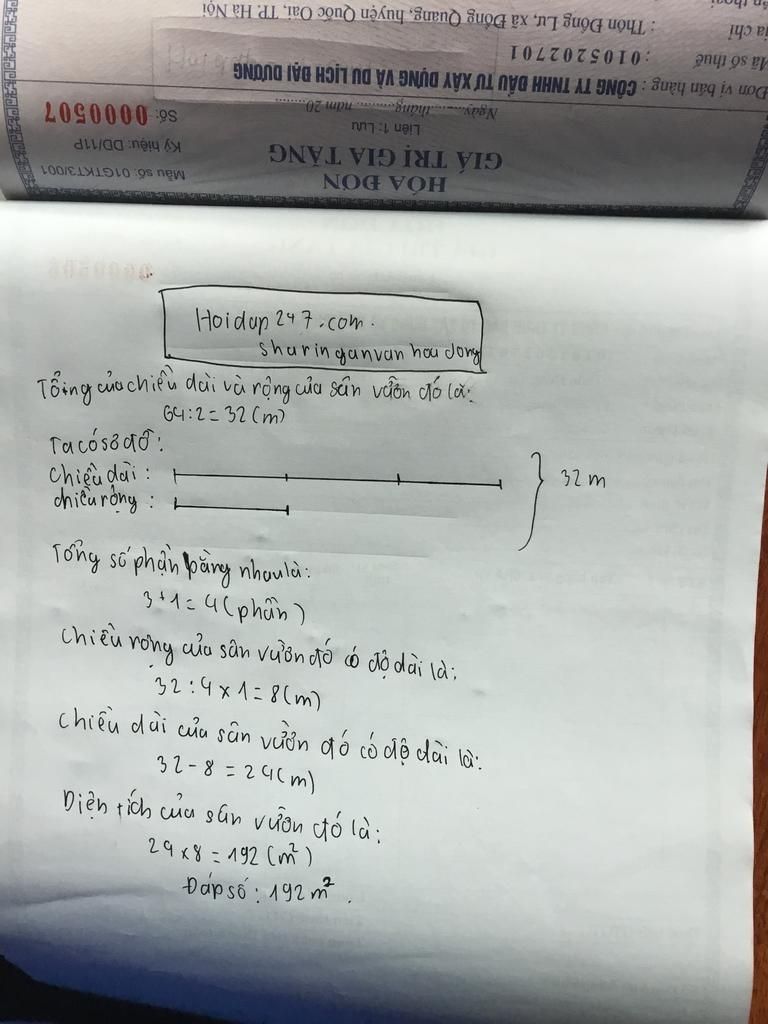 Thôn Đông Lư, xã Đông Quang, huyện Quốc Oai, TP. Hà Nội
Mã số thuế : 0105202701
Đơn vị bán hàng : CÔNG TY TNHH ĐẦU TƯ XÂY DỰNG VÀ DU LỊCH ĐẠI DƯƠNG
Ngày.........tháng.........năm 20.........
Liên 1: Lưu
Số: 0000507
GIÁ TRỊ GIA TĂNG
Ký hiệu: DD/11P
HÓA ĐƠN
Mẫu số: 01GTKT3/001
Hoidap247.com.
sharinganvanhoadong
Tổng của chiều dài và rộng của sân vườn đó là:
64:2=32(m)
Ta có sơ đồ:
Chiều dài :
chiều rộng :
32 m
Tổng số phần bằng nhau là:
3+1=4(phần)
Chiều rộng của sân vườn đó có độ dài là:
32:4x1=8(m)
Chiều dài của sân vườn đó có độ dài là:
32-8=24(m)
Diện tích của sân vườn đó là:
24x8=192(m²)
Đáp số: 192m².